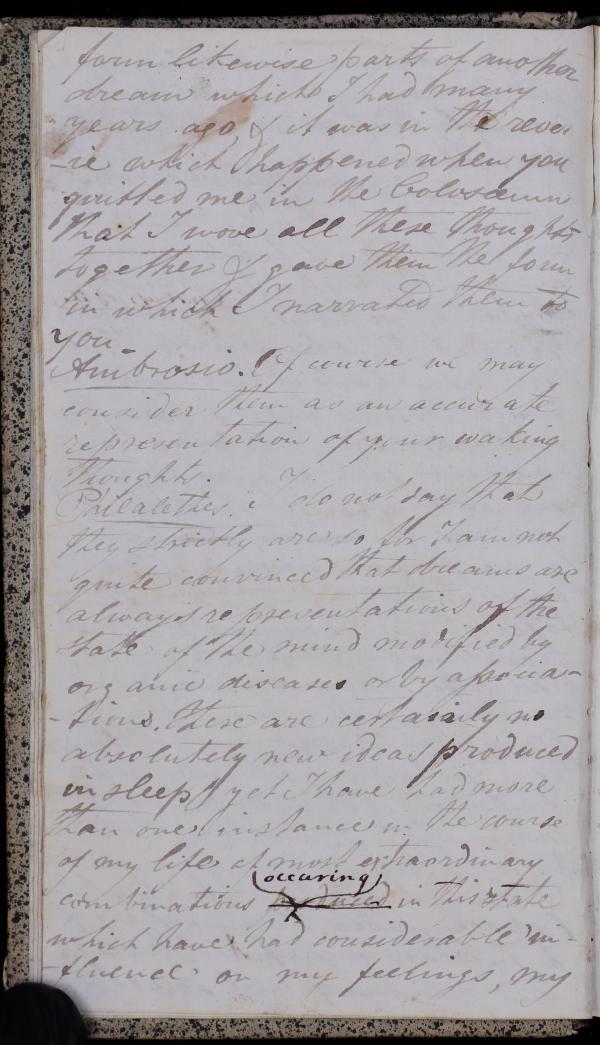 form likewise parts of another
dream which I had many
years ago & it was in the rever
-ie which happened when you
quitted me in the Colosæum
that I wove all these thoughts
together & gave them the form
in which I narrated them to
you
Ambrosio. Of course we may
consider them as an accurate
representation of your waking
thoughts.
Philalethes. I do not say that
they strictly are so for I am not
quite convinced that dreams are
always representations of the
state of the mind modified by
organic diseases or by associa-
-tions. There are certainly no
absolutely new ideas produced
in sleep yet I have had more
than one instance in the course
of my life of most extraordinary
occuring
combinations produced in this state
which have had considerable in-
-fluence on my feelings, my